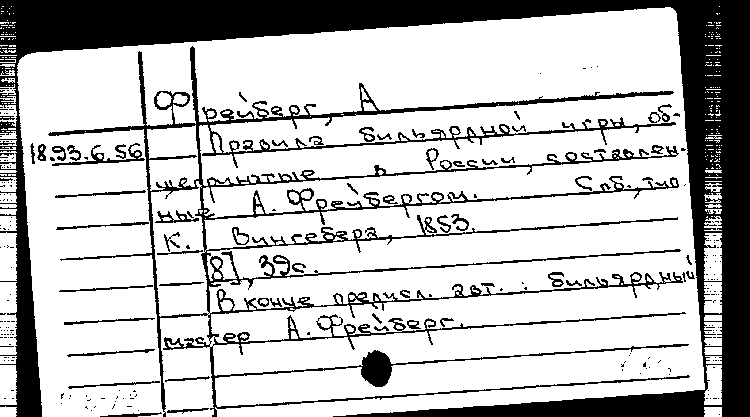 Фрейберг, А
18.93.6.56 Правила бильярдной игры, об-
щепринятые в России, составлен-
ные А. Фрейбергом. Спб., тип
К. Вингебера, 1853.
[8], 39с.
В конце предисл. авт.: бильярдный
мастер А. Фрейберг.